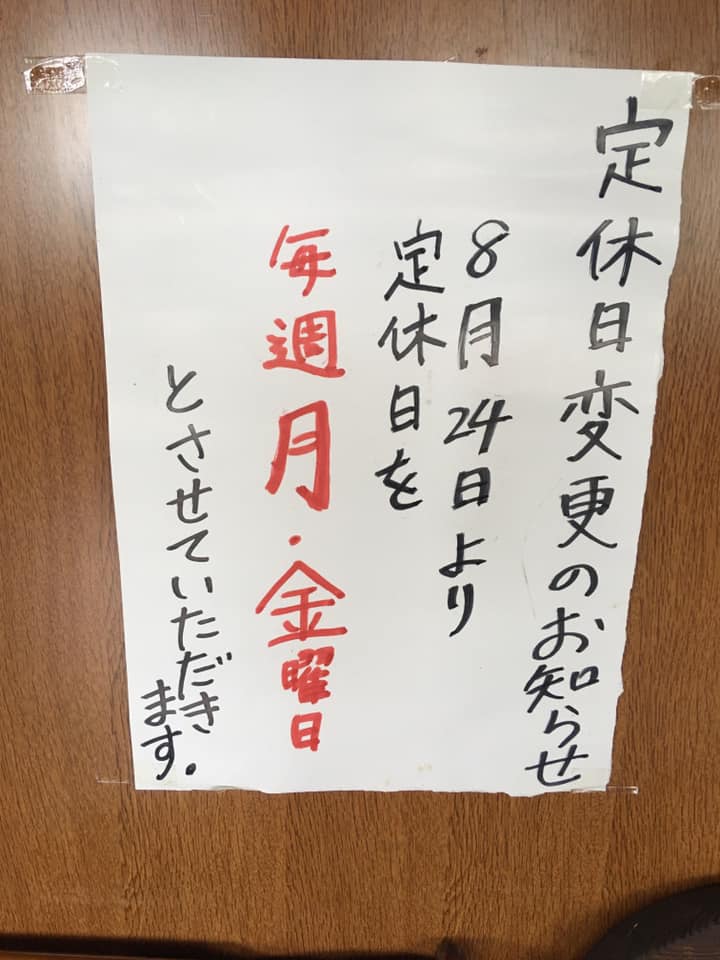 定休日変更のお知らせ
8月24日より
定休日を
毎週月・金曜日
とさせていただき
ます。